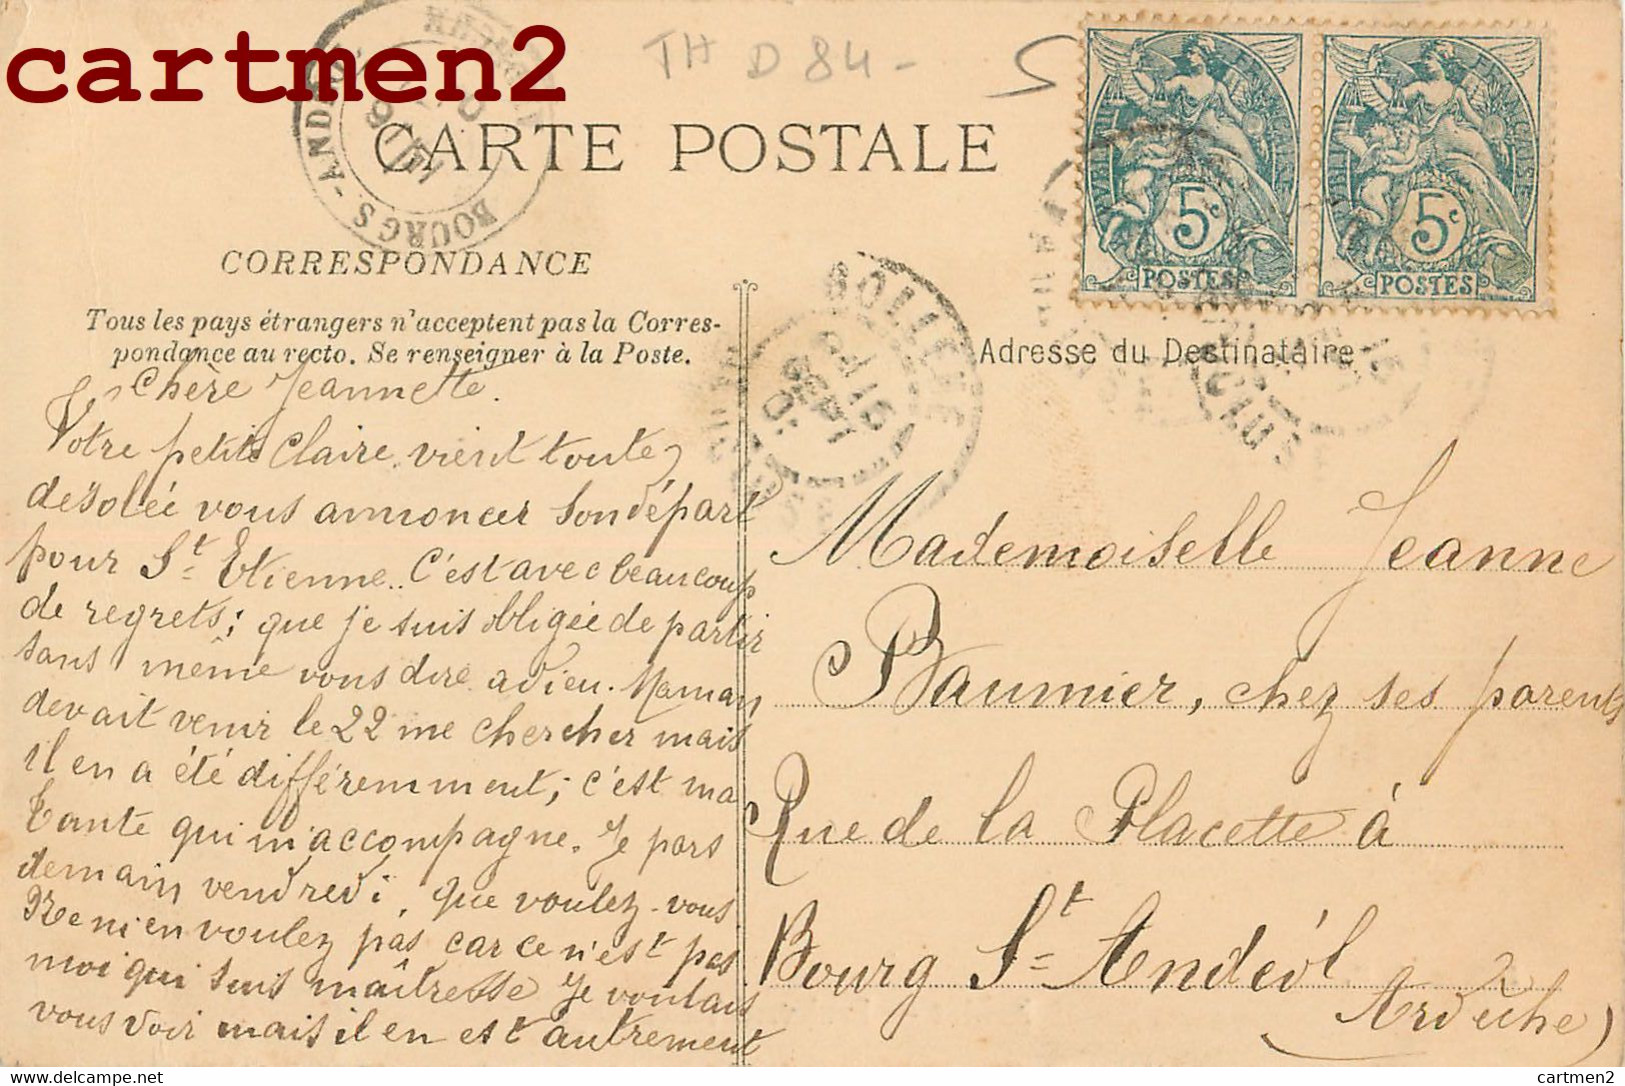 cartmen2
TH D 84-
5
BOURG S^-ANDEOL
CARTE POSTALE
RÉPUBLIQUE FRANÇAISE
5c
POSTES
RÉPUBLIQUE FRANÇAISE
5c
POSTES
CORRESPONDANCE
Tous les pays étrangers n'acceptent pas la Corres-
pondance au recto. Se renseigner à la Poste.
BOLLENE
VAUCLUSE
Adresse du Destinataire
Chère Jeannette.
Votre petite Claire vient toute
désolée vous annoncer son départ
pour St Etienne. C'est avec beaucoup
de regrets; que je suis obligée de partir
sans même vous dire adieu. Maman
devait venir le 22 me chercher mais
il en a été différemment; c'est ma
tante qui m'accompagne. Je pars
demain vendredi. Que voulez-vous
Ne m'en voulez pas car ce n'est pas
moi qui suis maîtresse Je voulais
vous voir mais il en est autrement
Mademoiselle Jeanne
Baumier, chez ses parents
Rue de la Placette à
Bourg St Andéol
(Ardèche)
cartmen2